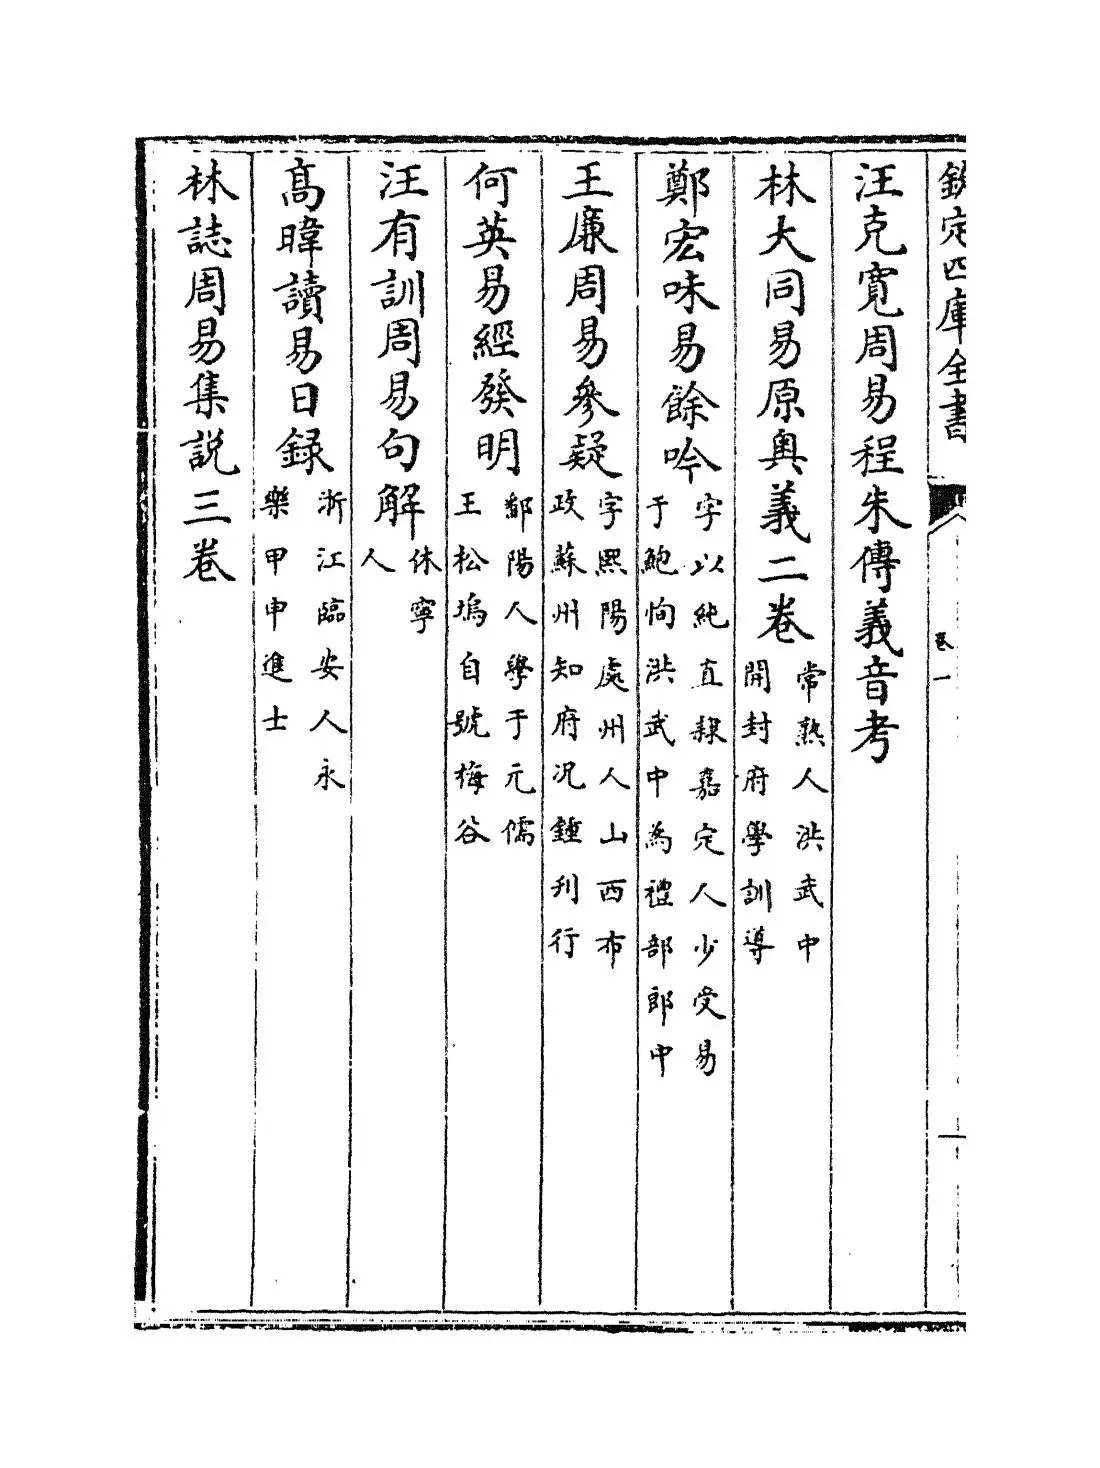 欽定四庫全書
卷一
汪克寬周易程朱傳義音考
林大同易原奥義二卷
常熟人洪武中
開封府學訓導
鄭宏味易餘吟
字以純直隸嘉定人少受易
于鮑恂洪武中為禮部郎中
王廉周易參疑
字熙陽處州人山西布
政蘇州知府况鍾刊行
何英易經發明
鄱陽人學于元儒
王松塢自號梅谷
汪有訓周易句解
休寧
人
髙暐讀易日録
浙江臨安人永
樂甲申進士
林誌周易集説三卷